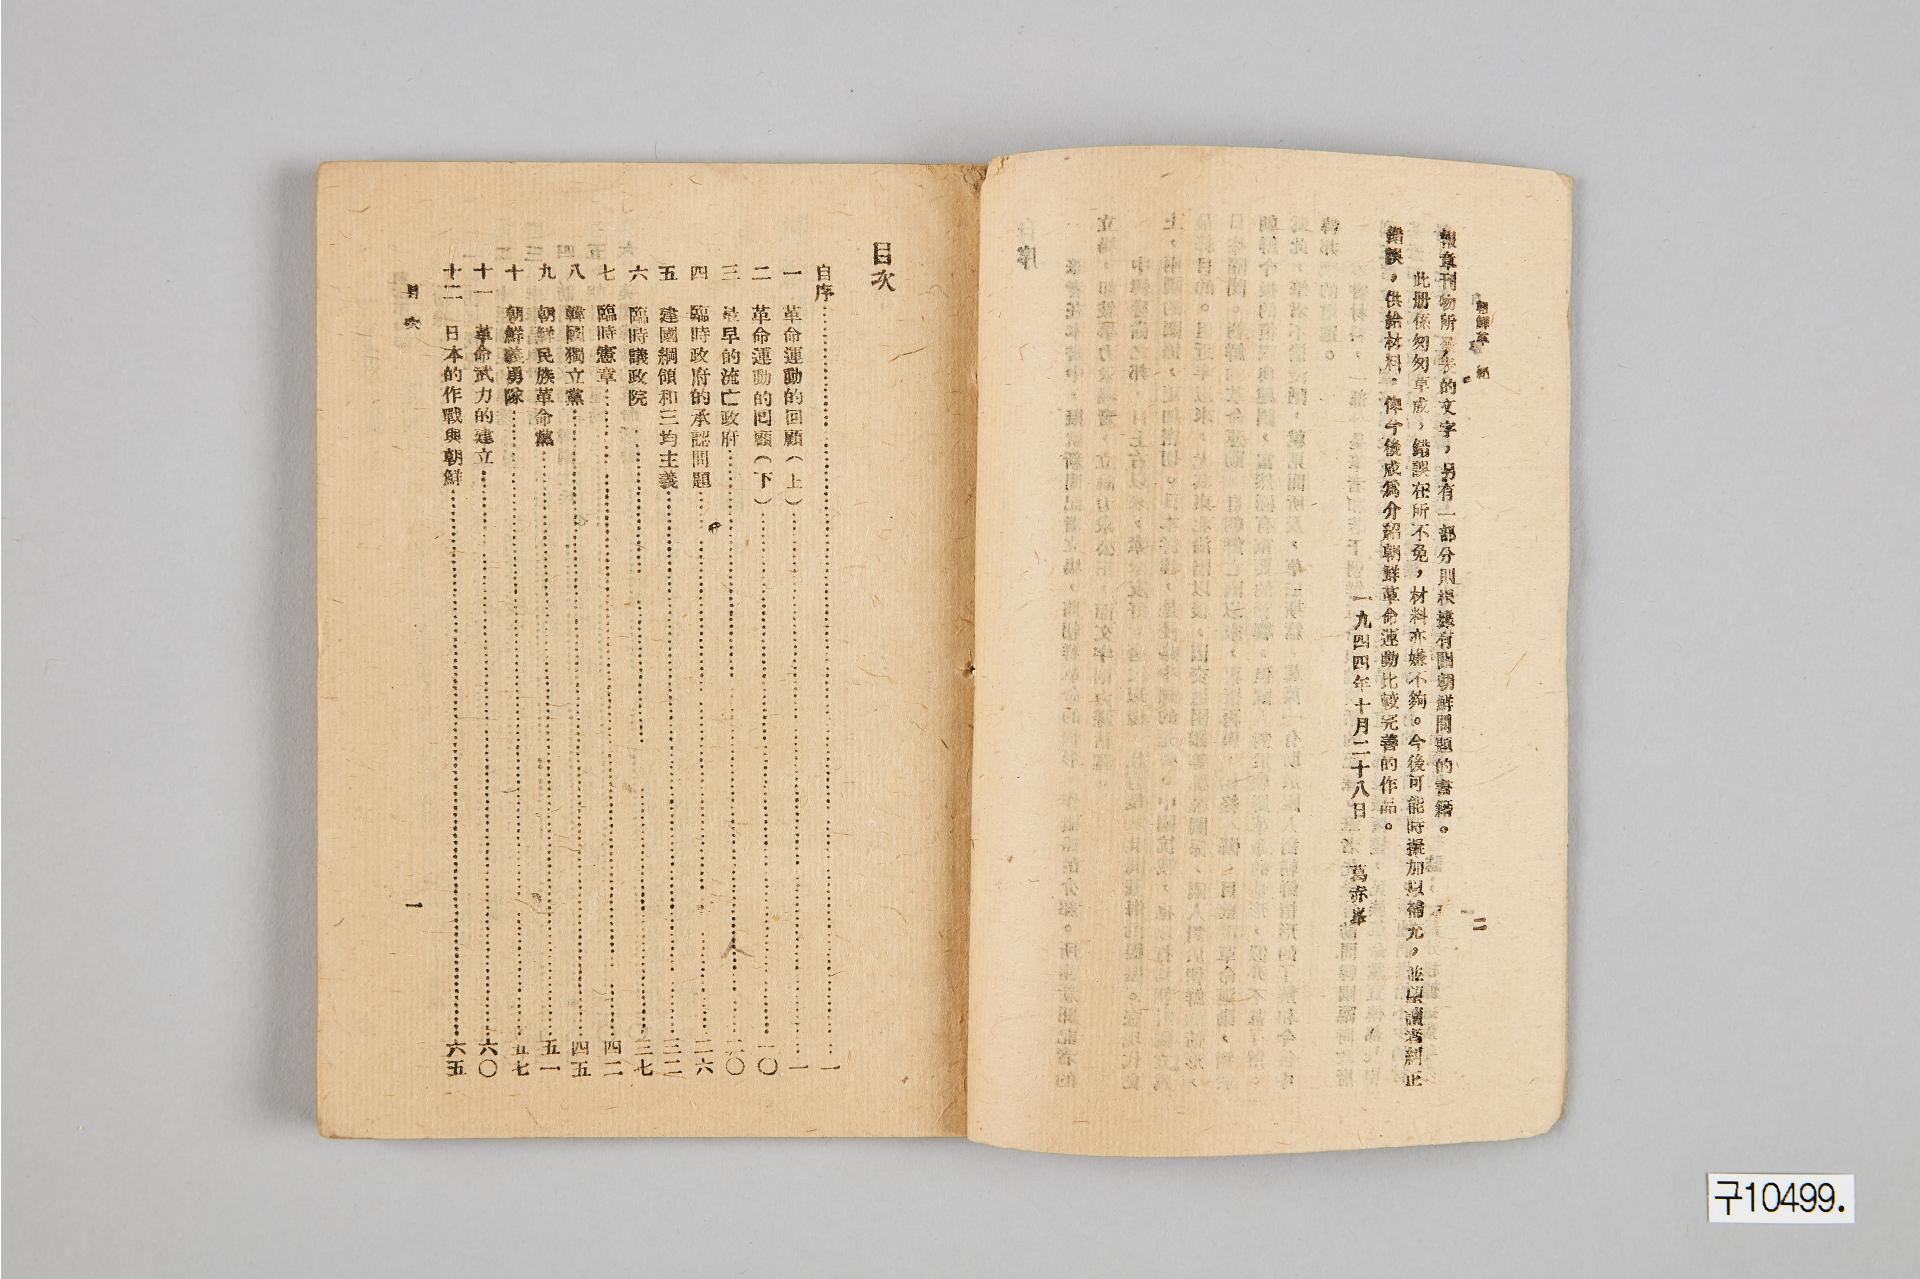 朝鮮革命紀
二
報章刊物所發表的文字，另有一部分則根據有關朝鮮問題的書籍。
此册係匆匆草成，錯誤在所不免，材料亦嫌不夠。今後可能時擬加以補充，並望讀者糾正
錯誤，供給材料，俾今後成爲介紹朝鮮革命運動比較完善的作品。
一九四四年十月二十八日 葛赤峯
目次
自序……一
一 革命運動的回顧(上)……一
二 革命運動的囘顧(下)……一〇
三 最早的流亡政府……二〇
四 臨時政府的承認問題……二六
五 建國綱領和三均主義……三二
六 臨時議政院……三七
七 臨時憲章……四二
八 韓國獨立黨……四五
九 朝鮮民族革命黨……五一
十 朝鮮義勇隊……五七
十一 革命武力的建立……六〇
十二 日本的作戰與朝鮮……六五
目次
一
구10499.